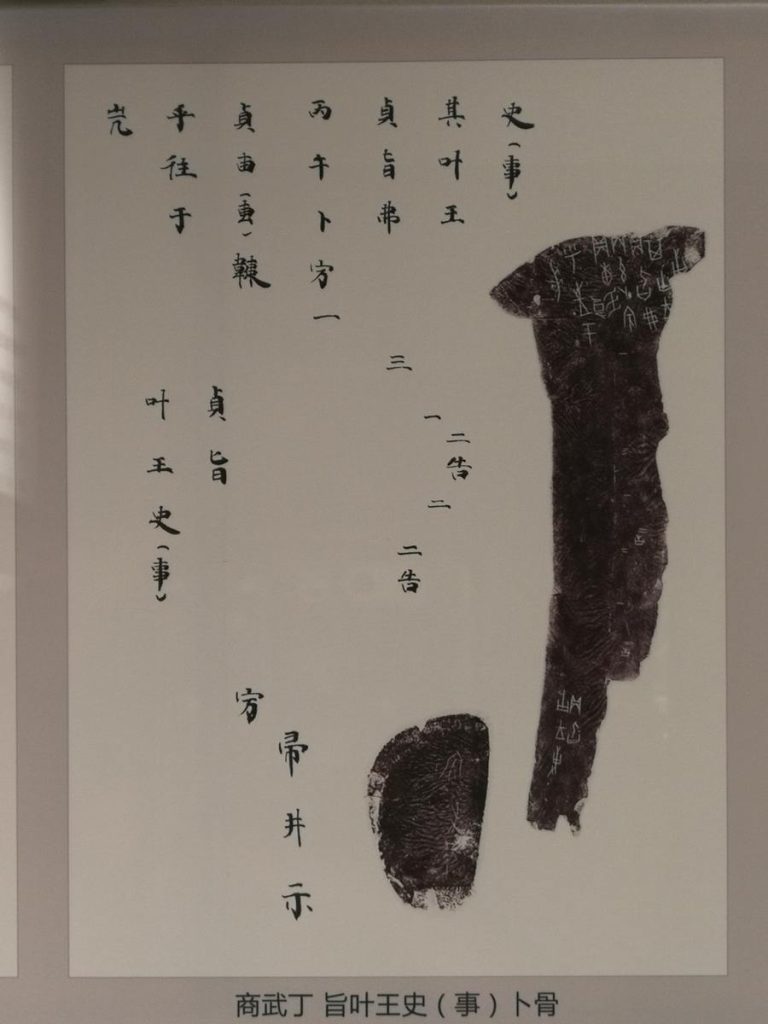 丙午卜㝐一
貞旨弗
其叶王
史（事）
貞由（叀）
乎往于
三
一
二告
二
二告
貞旨
叶王史（事）
㝐
帚井示
商武丁 旨叶王史（事）卜骨